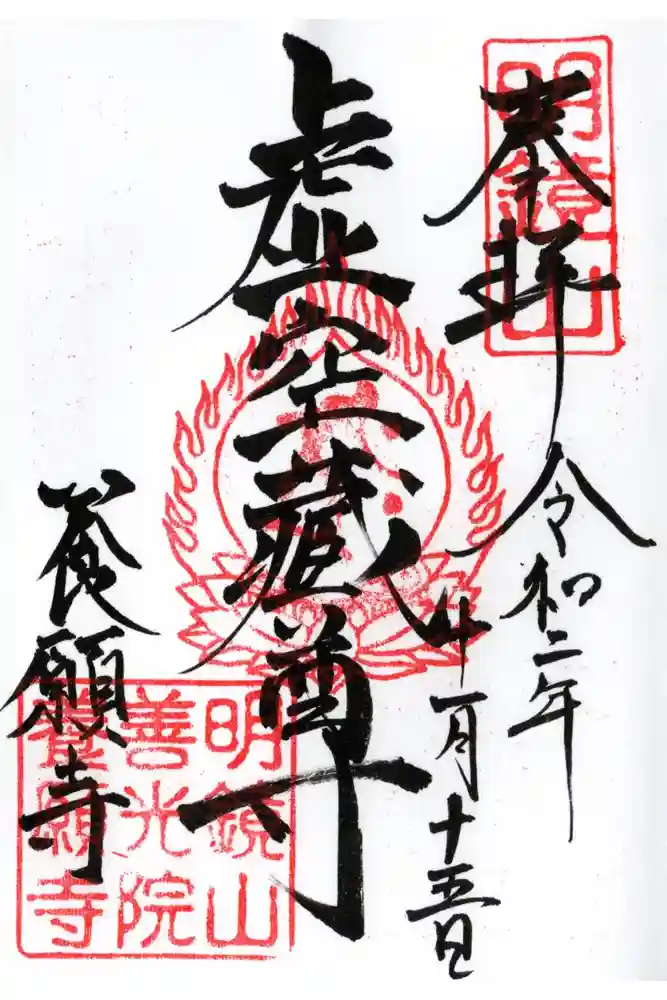 奉拝
明鏡山
令和二年
十一月十五日
虚空蔵尊
養願寺
明鏡山
善光院
養願寺